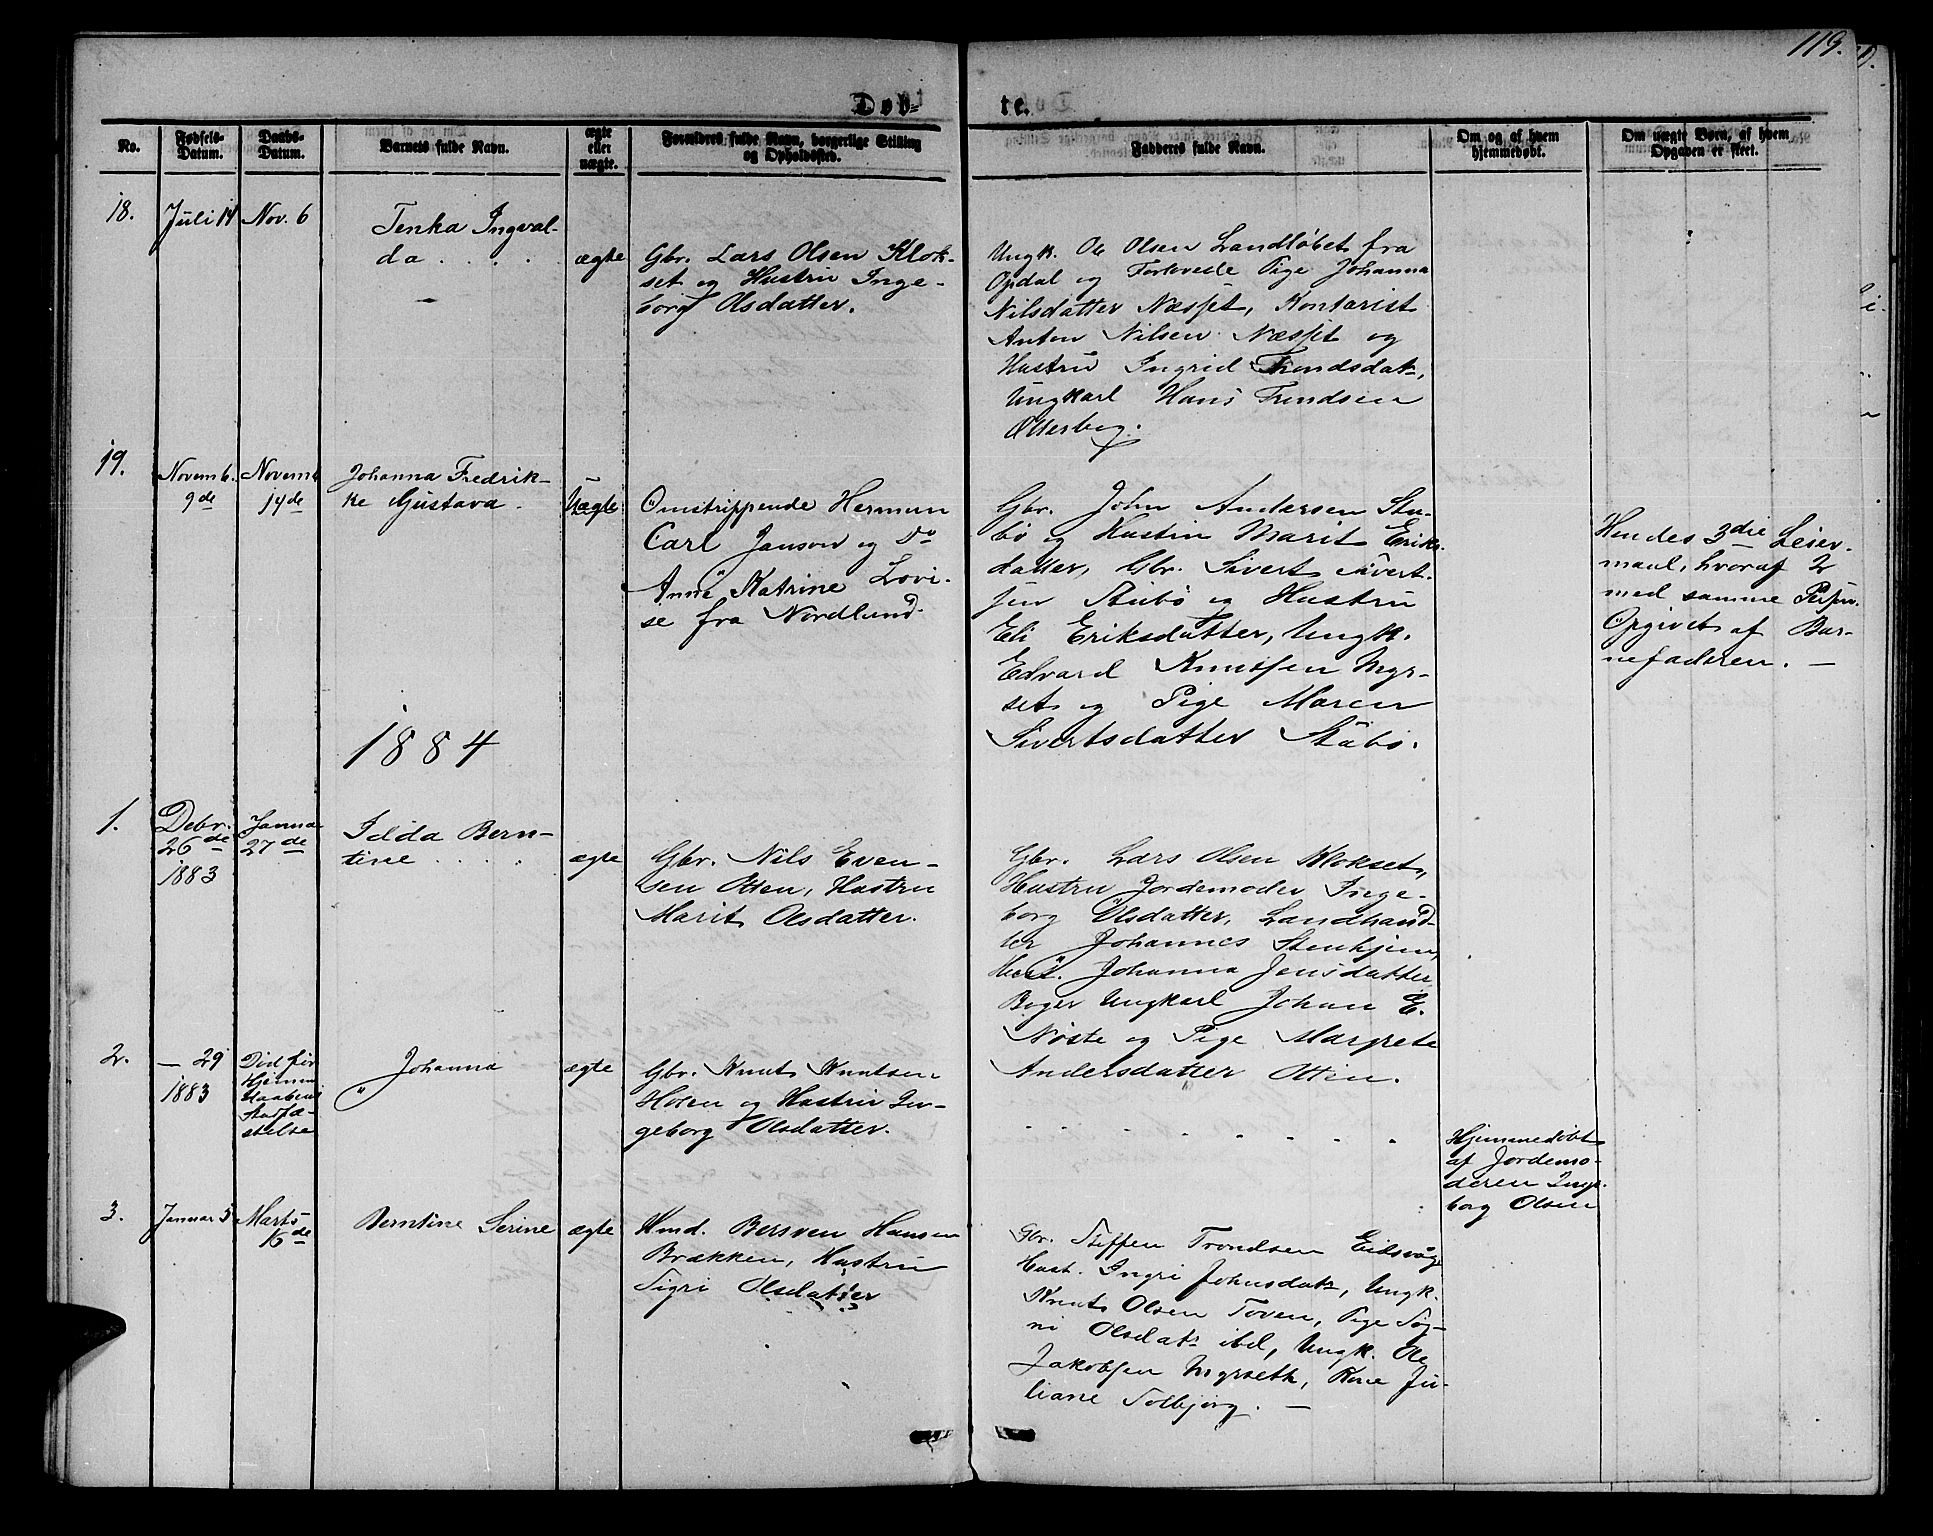 119.
Døb-
te.
No.
Fødsels-
Datum.
Daabs-
Datum.
Barnets fulde Navn.
ægte
eller
uægte.
Forældres fulde Navn, borgerlige Stilling
og Opholdssted.
Fadderes fulde Navn.
Om og af hvem
hjemmedøbt.
Om uægte Børn, af hvem
Opgaven er skeet.
18.
Juli 14
Nov. 6
Tenka Ingval-
da . . . .
ægte
Gbr. Lars Olsen Klok-
set og Hustru Inge-
borg Olsdatter.
Ungk. Ole Olsen Landløbet fra
Opdal og Forlovede Pige Johanna
Nilsdatter Næsset, Kontorist
Anton Nilsen Næsset og
Hustru Ingrid Trondsdat,
Ungkarl Hans Trondsen
Otterbeg.
19.
Novemb.
9de
Novemb
14de
Johanna Fredrik-
ke Gustava.
Uægte
Omstrippende Herman
Carl Janson og Do
Anna Katrine Lovi-
se fra Nordland.
Gbr. John Andersen Stu-
bø og Hustru Marit Eriks-
datter, Gbr. Sivert Sivert-
sen Stubø og Hustru
Eli Eriksdatter, Ungk.
Edvard Knutsen Myr-
set og Pige Maren
Sivertsdatter Stubø.
Hendes 3die Leier-
maal, hvoraf 2
med samme Person.
Opgivet af Bar-
nefaderen. —
1884
1.
Debr.
26de
1883
Janua
27de
Ilda Bern-
tine . . . .
ægte
Gbr. Nils Even-
sen Otten, Hustru
Marit Olsdatter.
Gbr. Lars Olsen Klokset,
Hustru Jordemoder Inge-
borg Olsdatter, Landhand-
ler Johannes Stenhjem,
Hust. Johanna Jensdatter
Boger Ungkarl Johan E.
Nøste og Pige Margrete
Andersdatter Otten.
2.
— 29
1883
Død før
Hjemme
daabens
Stadfæ-
stelse
Johanna
ægte
Gbr. Knut Knutsen
Holen og Hustru In-
geborg Olsdatter.
Hjemmedøbt
af Jordemo-
deren Inge-
borg Olsen
3.
Januar 5
Marts
16de
Berntine Serine
ægte
Hmd. Bersven Hansen
Brækken, Hustru
Sigri Olsdatter
Gbr. Steffen Trondsen Eidsvåg
Hust. Ingri Johnsdat, Ungk.
Knut Olsen Toven, Pige Sig-
ni Olsdat ibd, Ungk. Ole
Jakobsen Myrseth, Kone Ju-
liane Solbjørg. —